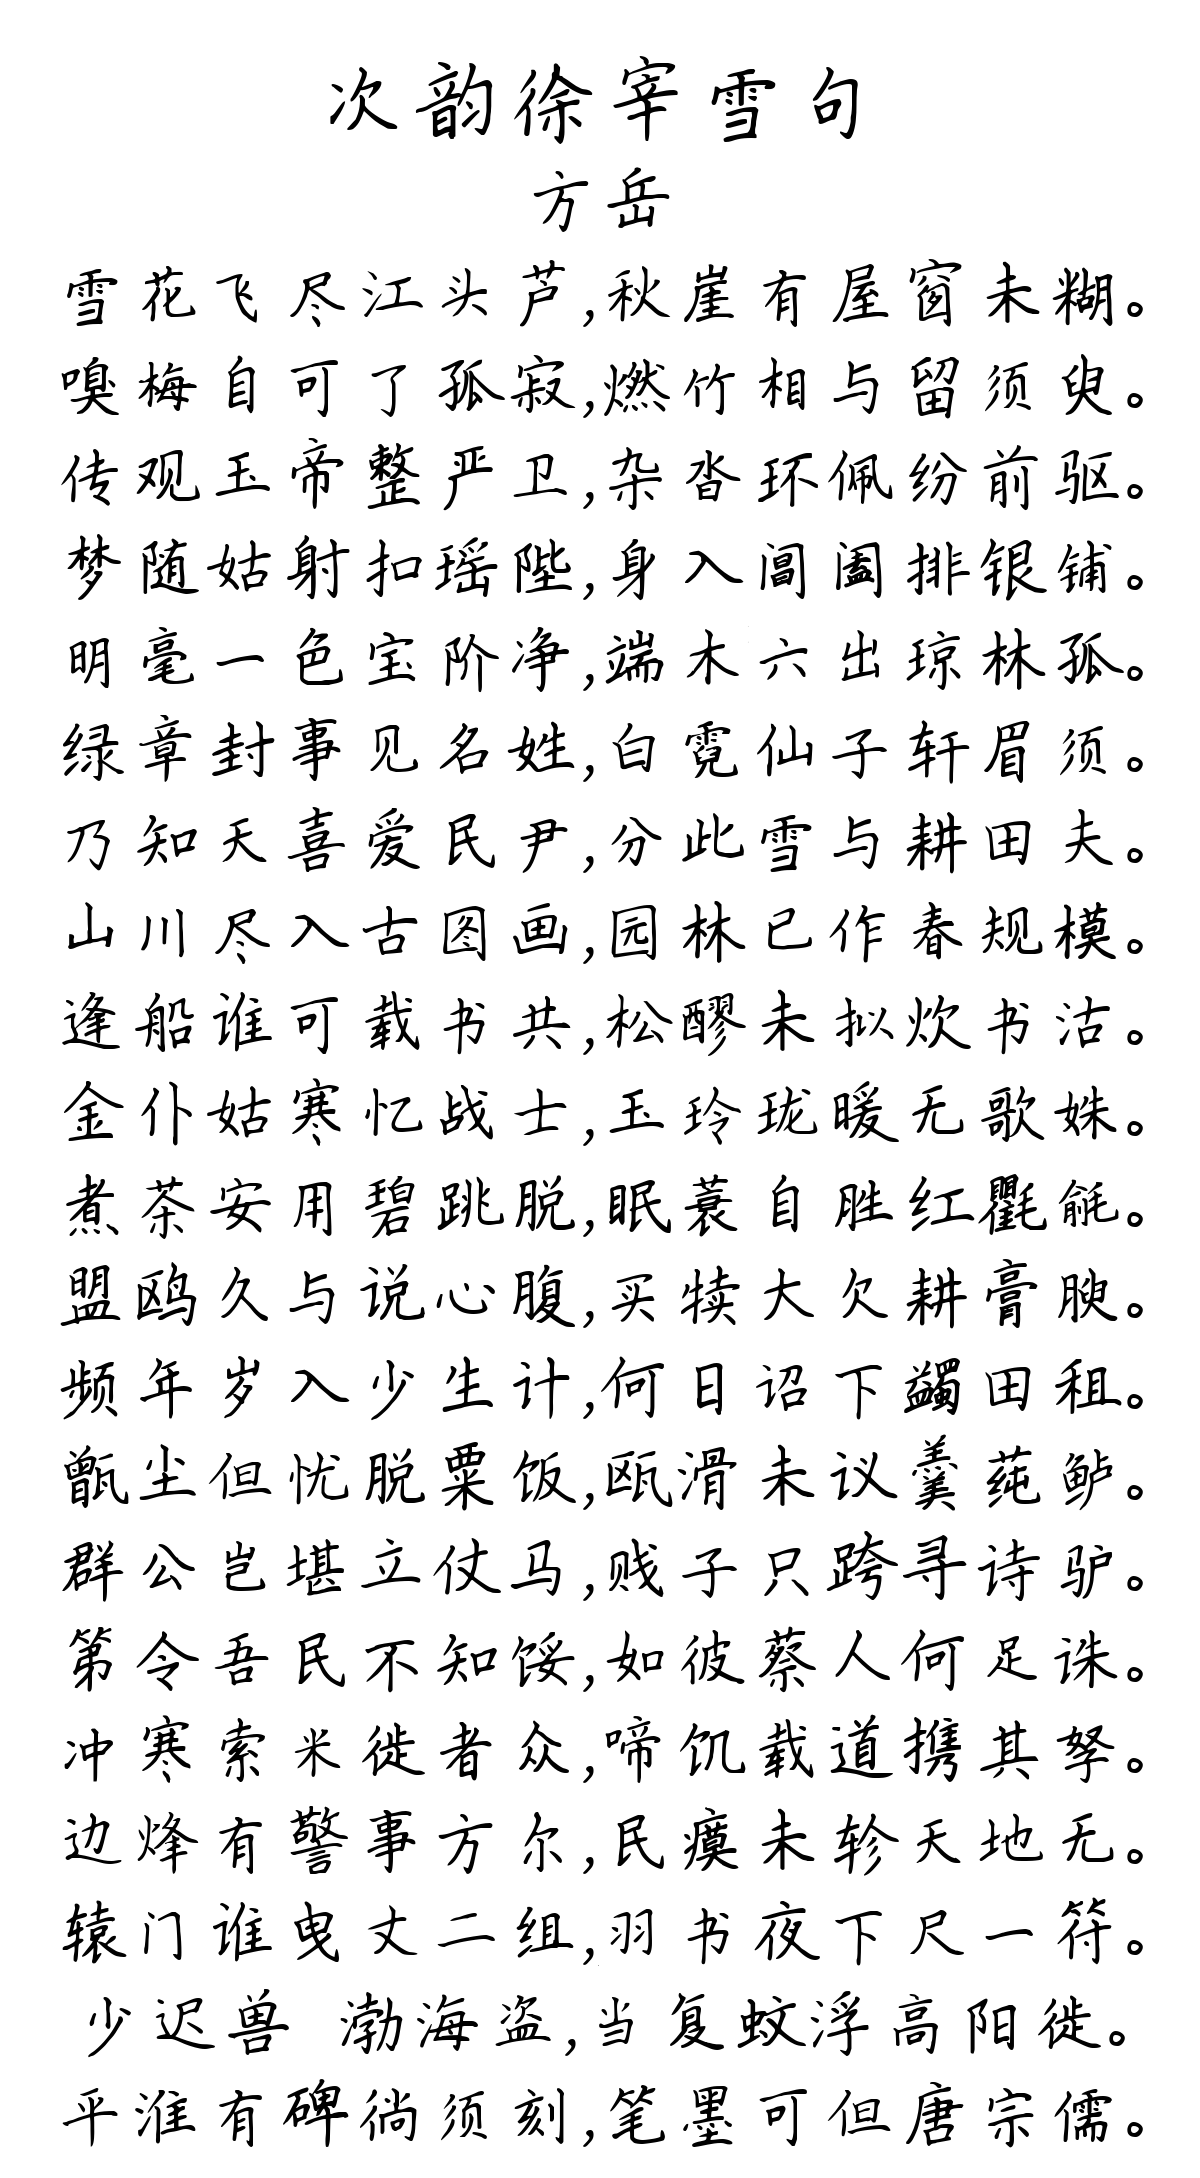 次韵徐宰雪句
方岳
雪花飞尽江头芦,秋崖有屋窗未糊。
嗅梅自可了孤寂,燃竹相与留须臾。
传观玉帝整严卫,杂沓环佩纷前驱。
梦随姑射扣瑶陛,身入阊阖排银铺。
明毫一色宝阶净,端木六出琼林孤。
绿章封事见名姓,白霓仙子轩眉须。
乃知天喜爱民尹,分此雪与耕田夫。
山川尽入古图画,园林已作春规模。
逢船谁可载书共,松醪未拟炊书沽。
金仆姑寒忆战士,玉玲珑暖无歌姝。
煮茶安用碧跳脱,眠蓑自胜红氍毹。
盟鸥久与说心腹,买犊大欠耕膏腴。
频年岁入少生计,何日诏下蠲田租。
甑尘但忧脱粟饭,瓯滑未议羹莼鲈。
群公岂堪立仗马,贱子只跨寻诗驴。
第令吾民不知馁,如彼蔡人何足诛。
冲寒索米徙者众,啼饥载道携其孥。
边烽有警事方尔,民瘼未轸天地无。
辕门谁曳丈二组,羽书夜下尺一符。
少迟兽 渤海盗,当复蚊浮高阳徙。
平淮有碑徜须刻,笔墨可但唐宗儒。